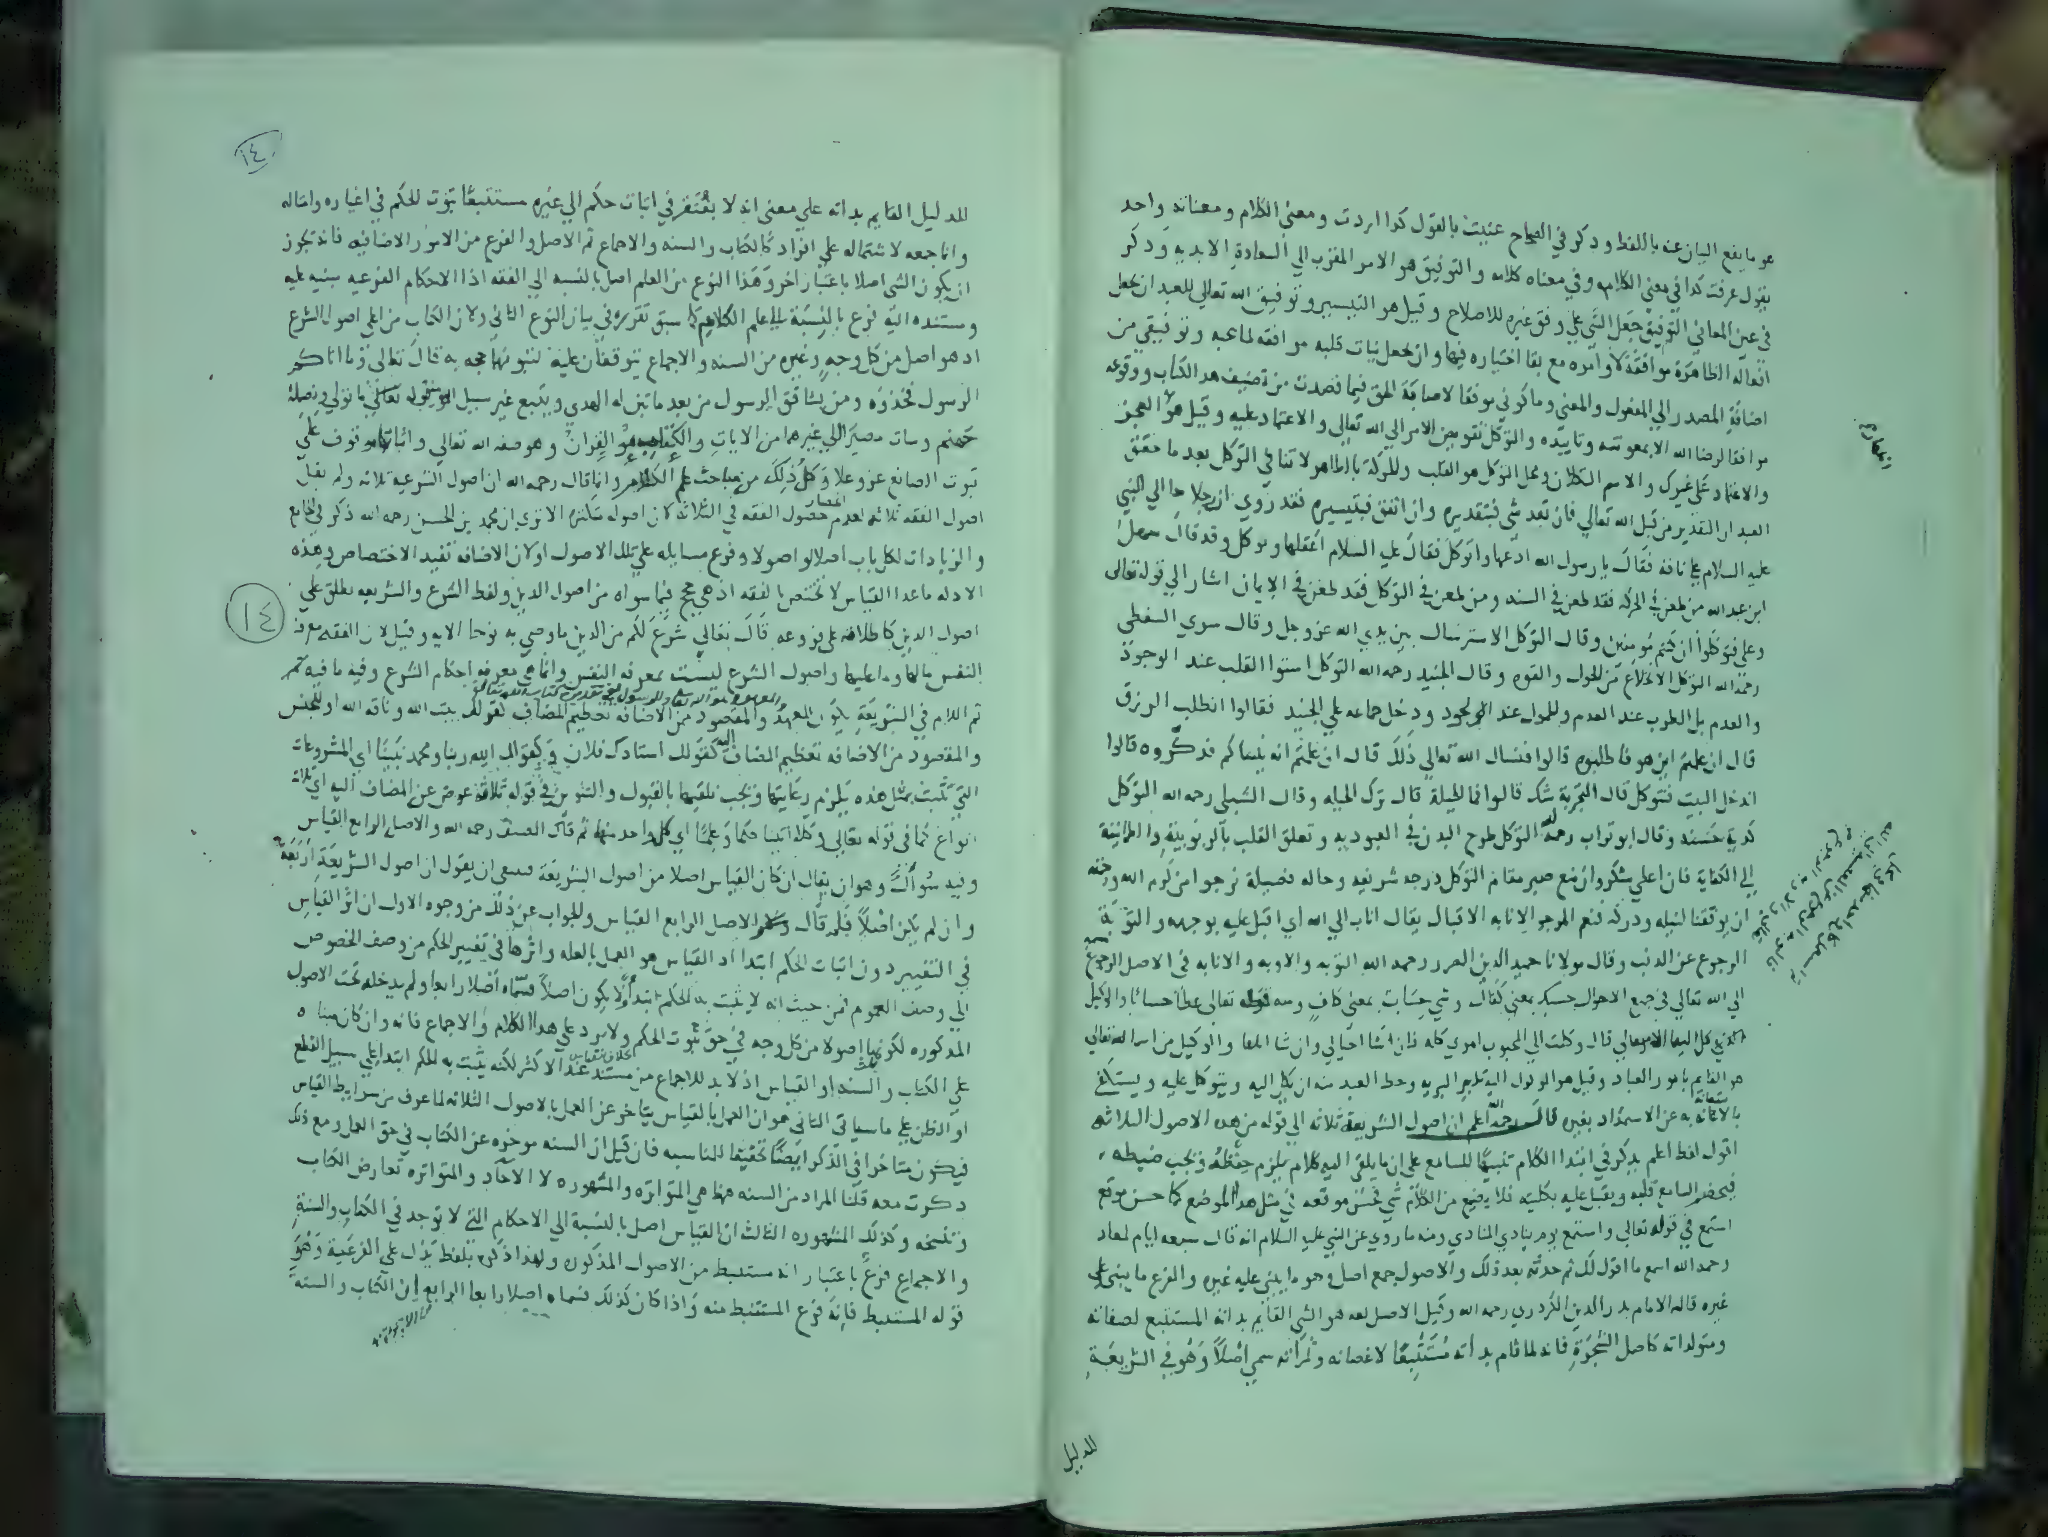 هو ما يقع البيان عنه باللفظ وذكر في الصحاح عنيت بالقول كذا اردت ومعنى الكلام ومعناته واحد
يقول عرفت كذا في معنى الكلام وفي معناه كلامه والتوفيق هو الامر المقرب الى السعادة الابديه وذكر
في عين المعاني التوفيق جعل الشي على وفق غيره للاصلاح وقيل هو التيسير وتوفيق الله تعالى للعبد ان يجعل
افعاله الظاهرة موافقة لاوامره مع بقا اختياره فيها وان يجعل نيات قلبه موافقه لما يحبه وتوفيقي من
اضافة المصدر الى المفعول والمعنى وما كوني موفقا لاصابة الحق فيما قصدت من تصنيف هذا الكتاب ووقوعه
موافقا لرضا الله الا بمعونته وتاييده والتوكل تفويض الامر الى الله تعالى والاعتماد عليه وقيل هو العجز
والاعتماد على غيرك والاسم التكلان ومحل التوكل هو القلب والحركة بالظاهر لا تنافي التوكل بعد ما حقق
العبد ان التقدير من قبل الله تعالى فان تعذر شي فبتقديره وان اتفق فبتيسيره فقد روي ان رجلا جا الى النبي
عليه السلام على ناقه فقال يا رسول الله ادعها واتوكل فقال عليه السلام اعقلها وتوكل وقد قال سهل
ابن عبد الله من طعن في الحركه فقد طعن في السنه ومن طعن في التوكل فقد طعن في الايمان اشار الى قوله تعالى
وعلى الله فتوكلوا ان كنتم مومنين وقال التوكل الاسترسال بين يدي الله عز وجل وقال سري السقطي
رحمه الله التوكل الانخلاع من الحول والقوه وقال الجنيد رحمه الله التوكل استوا القلب عند الوجود
والعدم بل الطرب عند العدم والخمول عند الوجود ودخل جماعه على الجنيد فقالوا انطلب الرزق
قال ان علمتم اين هو فاطلبوه قالوا فنسال الله تعالى ذلك قال ان علمتم انه ينساكم فذكروه قالوا
اندخل البيت فنتوكل قال التجربة شك قالوا فما الحيلة قال ترك الحيله وقال الشبلي رحمه الله التوكل
كدية حسنه وقال ابو تراب رحمه الله التوكل طرح البدن في العبوديه وتعلق القلب بالربوبية والطمانينة
الى الكفاية فان اعطي شكر وان منع صبر مقام التوكل درجه شريفه وحاله فضيلة نرجو من كرم الله ورحمته
ان يوفقنا لنيله ودركه فنعم المرجو الانابه الاقبال يقال اناب الى الله اي اقبل عليه بوجهه والتوبة
الرجوع عن الذنب وقال مولانا حميد الدين الضرير رحمه الله التوبه والاوبه والانابه في الاصل الرجوع
الى الله تعالى في جميع الاحوال حسبك بمعنى كفاك وشي حساب بمعنى كاف ومنه قوله تعالى عطا حسابا والوكيل
هو القايم بامور العباد وقيل هو الموكول اليه تدبير البريه وحظ العبد منه ان يكل اليه ويتوكل عليه ويستغني
بالاستعانة به عن الاستمداد بغيره قال رحمه الله اعلم ان اصول الشريعة ثلاثه الى قوله من هذه الاصول الثلاثه
اقول لفظ اعلم يذكر في ابتدا الكلام تنبيها للسامع على ان ما يلقى اليه كلام يلزم حفظه ويجب ضبطه
فيحضر السامع قلبه ويقبل عليه بكليته فلا يضيع من الكلام شي فحسن موقعه في مثل هذا الموضع كما حسن موقع
استمع في قوله تعالى واستمع يوم ينادي المنادي ومنه ما روي عن النبي عليه السلام انه قال سبعه ايام لمعاد
رحمه الله اسمع ما اقول لك ثم حدثه بعد ذلك والاصول جمع اصل وهو ما يبتني عليه غيره والفرع ما يبتنى على
غيره قاله الامام بدر الدين الكردري رحمه الله وقيل الاصل لغه هو الشي القايم بذاته المستتبع لصفاته
ومتولداته كاصل الشجرة فانه لما قام بذاته مستتبعا لاغصانه وثمراته سمي اصلا وهو في الشريعة
للدليل
١٤
للدليل القايم بذاته على معنى انه لا يفتقر في اثبات حكم الى غيره مستتبعا ثبوت الحكم في اغياره وامثاله
وانما جمعه لاشتماله على افراد كالكتاب والسنه والاجماع ثم الاصل والفرع من الامور الاضافيه فانه يجوز
ان يكون الشي اصلا باعتبار اخر وهذا النوع من العلم اصل بالنسبه الى الفقه اذ الاحكام الفرعيه مبنيه عليه
ومستنده اليه فرع بالنسبة الى علم الكلام كما سبق تقريره في بيان النوع الثاني ولان الكتاب من اعلى اصول الشرع
اذ هو اصل من كل وجه وغيره من السنه والاجماع يتوقفان عليه لثبوتهما حجه به قال تعالى وما اتاكم
الرسول فخذوه ومن يشاقق الرسول من بعد ما تبين له الهدى ويتبع غير سبيل المومنين نوله ما تولى ونصله
جهنم وسات مصيرا الى غيرهما من الايات والكتاب هو القران وهو صفه الله تعالى واثباتها موقوف على
ثبوت الصانع عز وعلا وكل ذلك من مباحث علم الكلام وانما قال رحمه الله ان اصول الشرعيه ثلاثه ولم يقل
اصول الفقه ثلاثه لعدم انحصار اصول الفقه في الثلاثة لان اصوله متكثره الا ترى ان محمد بن الحسن رحمه الله ذكر في الجامع
والزيادات لكل باب اصلا او اصولا وفرع مسايله على تلك الاصول او لان الاضافه تفيد الاختصاص وهذه
الادله ما عدا القياس لا تختص بالفقه اذ هي حجج فيما سواه من اصول الدين ولفظ الشرع والشريعه يطلق على
١٤
اصول الدين كاطلاقه على فروعه قال تعالى شرع لكم من الدين ما وصى به نوحا الايه وقيل لان الفقه معرفه
النفس مالها وما عليها واصول الشرع ليست بمعرفه النفس وانما هي معرفه احكام الشرع وفيه ما فيه ثم
ثم اللام في الشريعة يكون للعهد والمقصود من الاضافه تعظيم المضاف كقولك بيت الله وناقه الله او للجنس
والمقصود من الاضافه تعظيم المضاف اليه كقولك استادك فلان في كقولك الله ربنا ومحمد نبينا اي المشروعات
التي ثبتت بمثل هذه يلزم رعايتها ويجب تلقيها بالقبول والتنوين في قوله ثلاثة عوض عن المضاف اليه اي ثلاثة
انواع كما في قوله تعالى وكلا اتينا حكما وعلما اي كل واحد منهما ثم قال المصنف رحمه الله والاصل الرابع القياس
وفيه سوال وهو ان يقال ان كان القياس اصلا من اصول الشريعة فينبغي ان يقول ان اصول الشريعة اربعة
وان لم يكن اصلا فلم قال والاصل الرابع القياس والجواب عن ذلك من وجوه الاول ان اثر القياس
في التغيير دون اثبات الحكم ابتدا اذ القياس هو العمل بالعله واثرها في تغيير الحكم من وصف الخصوص
الى وصف العموم فمن حيث انه لا يثبت به الحكم ابتدا لا يكون اصلا فسماه اصلا رابعا ولم يدخله تحت الاصول
المذكوره لكونها اصولا من كل وجه في حق ثبوت الحكم ولا يرد على هذا الكلام والاجماع فانه وان كان مبناه
على الكتاب والسنه او القياس اذ لا بد للاجماع من مستند عند الاكثر لكنه يثبت به الحكم ابتدا على سبيل القطع
او الظن على ما سياتي الثاني هو ان العمل بالقياس يتاخر عن العمل بالاصول الثلاثه لما عرف من شرايط القياس
فيكون متاخرا في الذكر ايضا تحقيقا للمناسبه فان قيل ان السنه موخره عن الكتاب في حق العمل ومع ذلك
ذكرت معه قلنا المراد من السنه هنا هي المتواتره والمشهوره لا الاحاد والمتواتره تعارض الكتاب
وتنسخه وكذلك المشهوره الثالث ان القياس اصل بالنسبة الى الاحكام التي لا توجد في الكتاب والسنة
والاجماع فرع باعتبار انه مستنبط من الاصول المذكوره ولهذا ذكره بلفظ يدل على الفرعية وهو
قوله المستنبط فانه فرع المستنبط منه واذا كان كذلك فسماه اصلا رابعا الرابع ان الكتاب والسنه